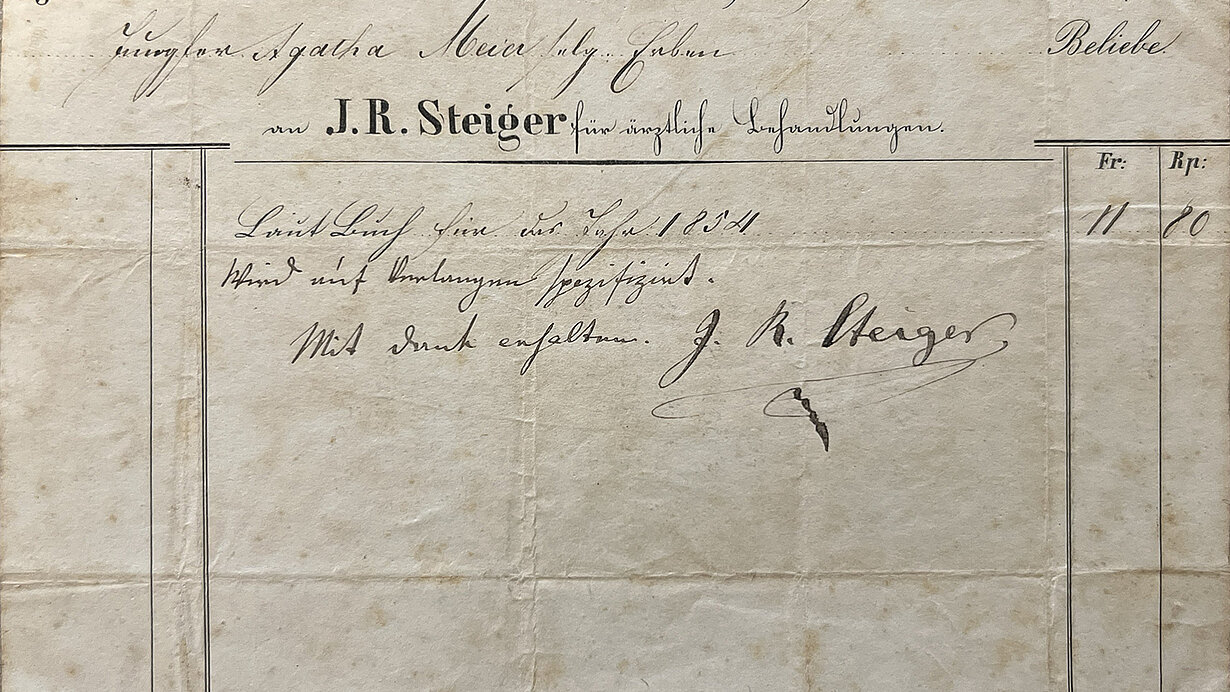 Jungfer Agatha Meier selg. Erben Beliebe
an J. R. Steiger für ärztliche Behandlungen.
Fr: Rp:
Laut Buch für das Jahr 1854 11 80
Wird auf Verlangen spezifizirt.
Mit dank erhalten. J. R. Steiger